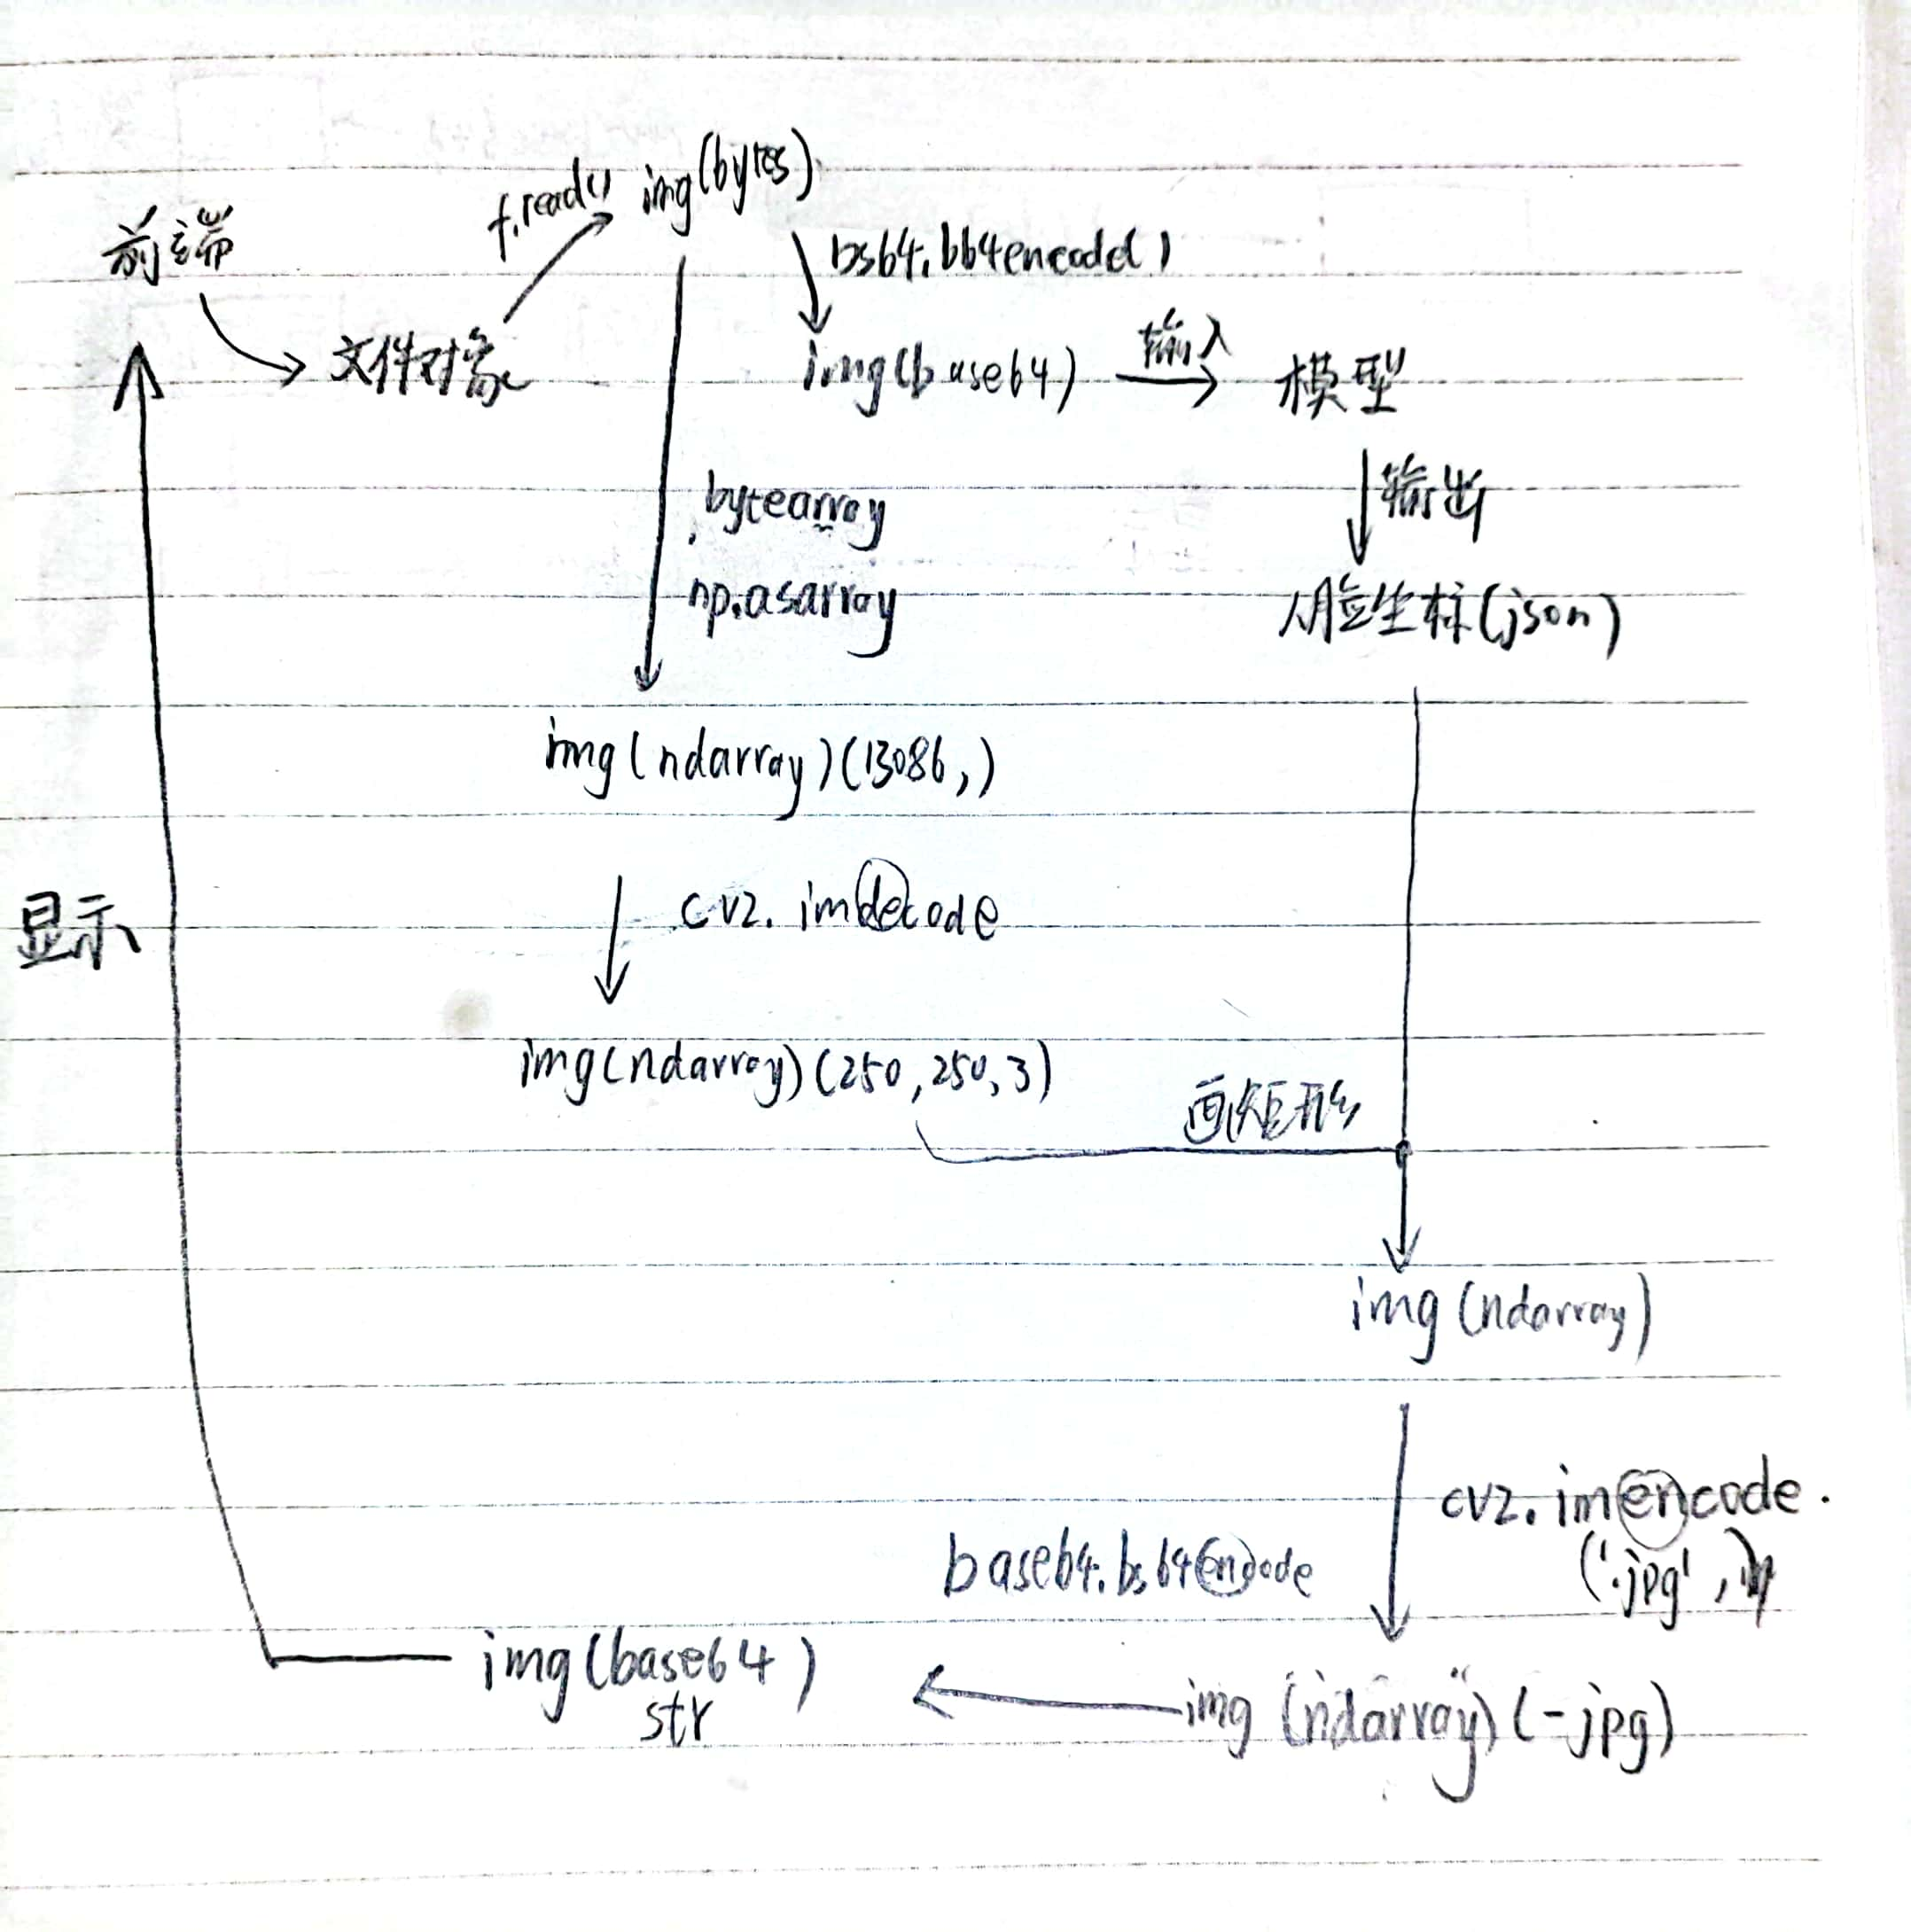 f.read() img(bytes)
前端
bs64.b64encode()
文件对象
img(base64)
输入
模型
输出
bytearray
np.asarray
人脸坐标(json)
img(ndarray)(13086,)
cv2.imdecode
显示
img(ndarray)(250,250,3)
画矩形
img(ndarray)
cv2.imencode.
('.jpg',
base64.bs64encode
img(base64)
str
img(ndarray)(-jpg)